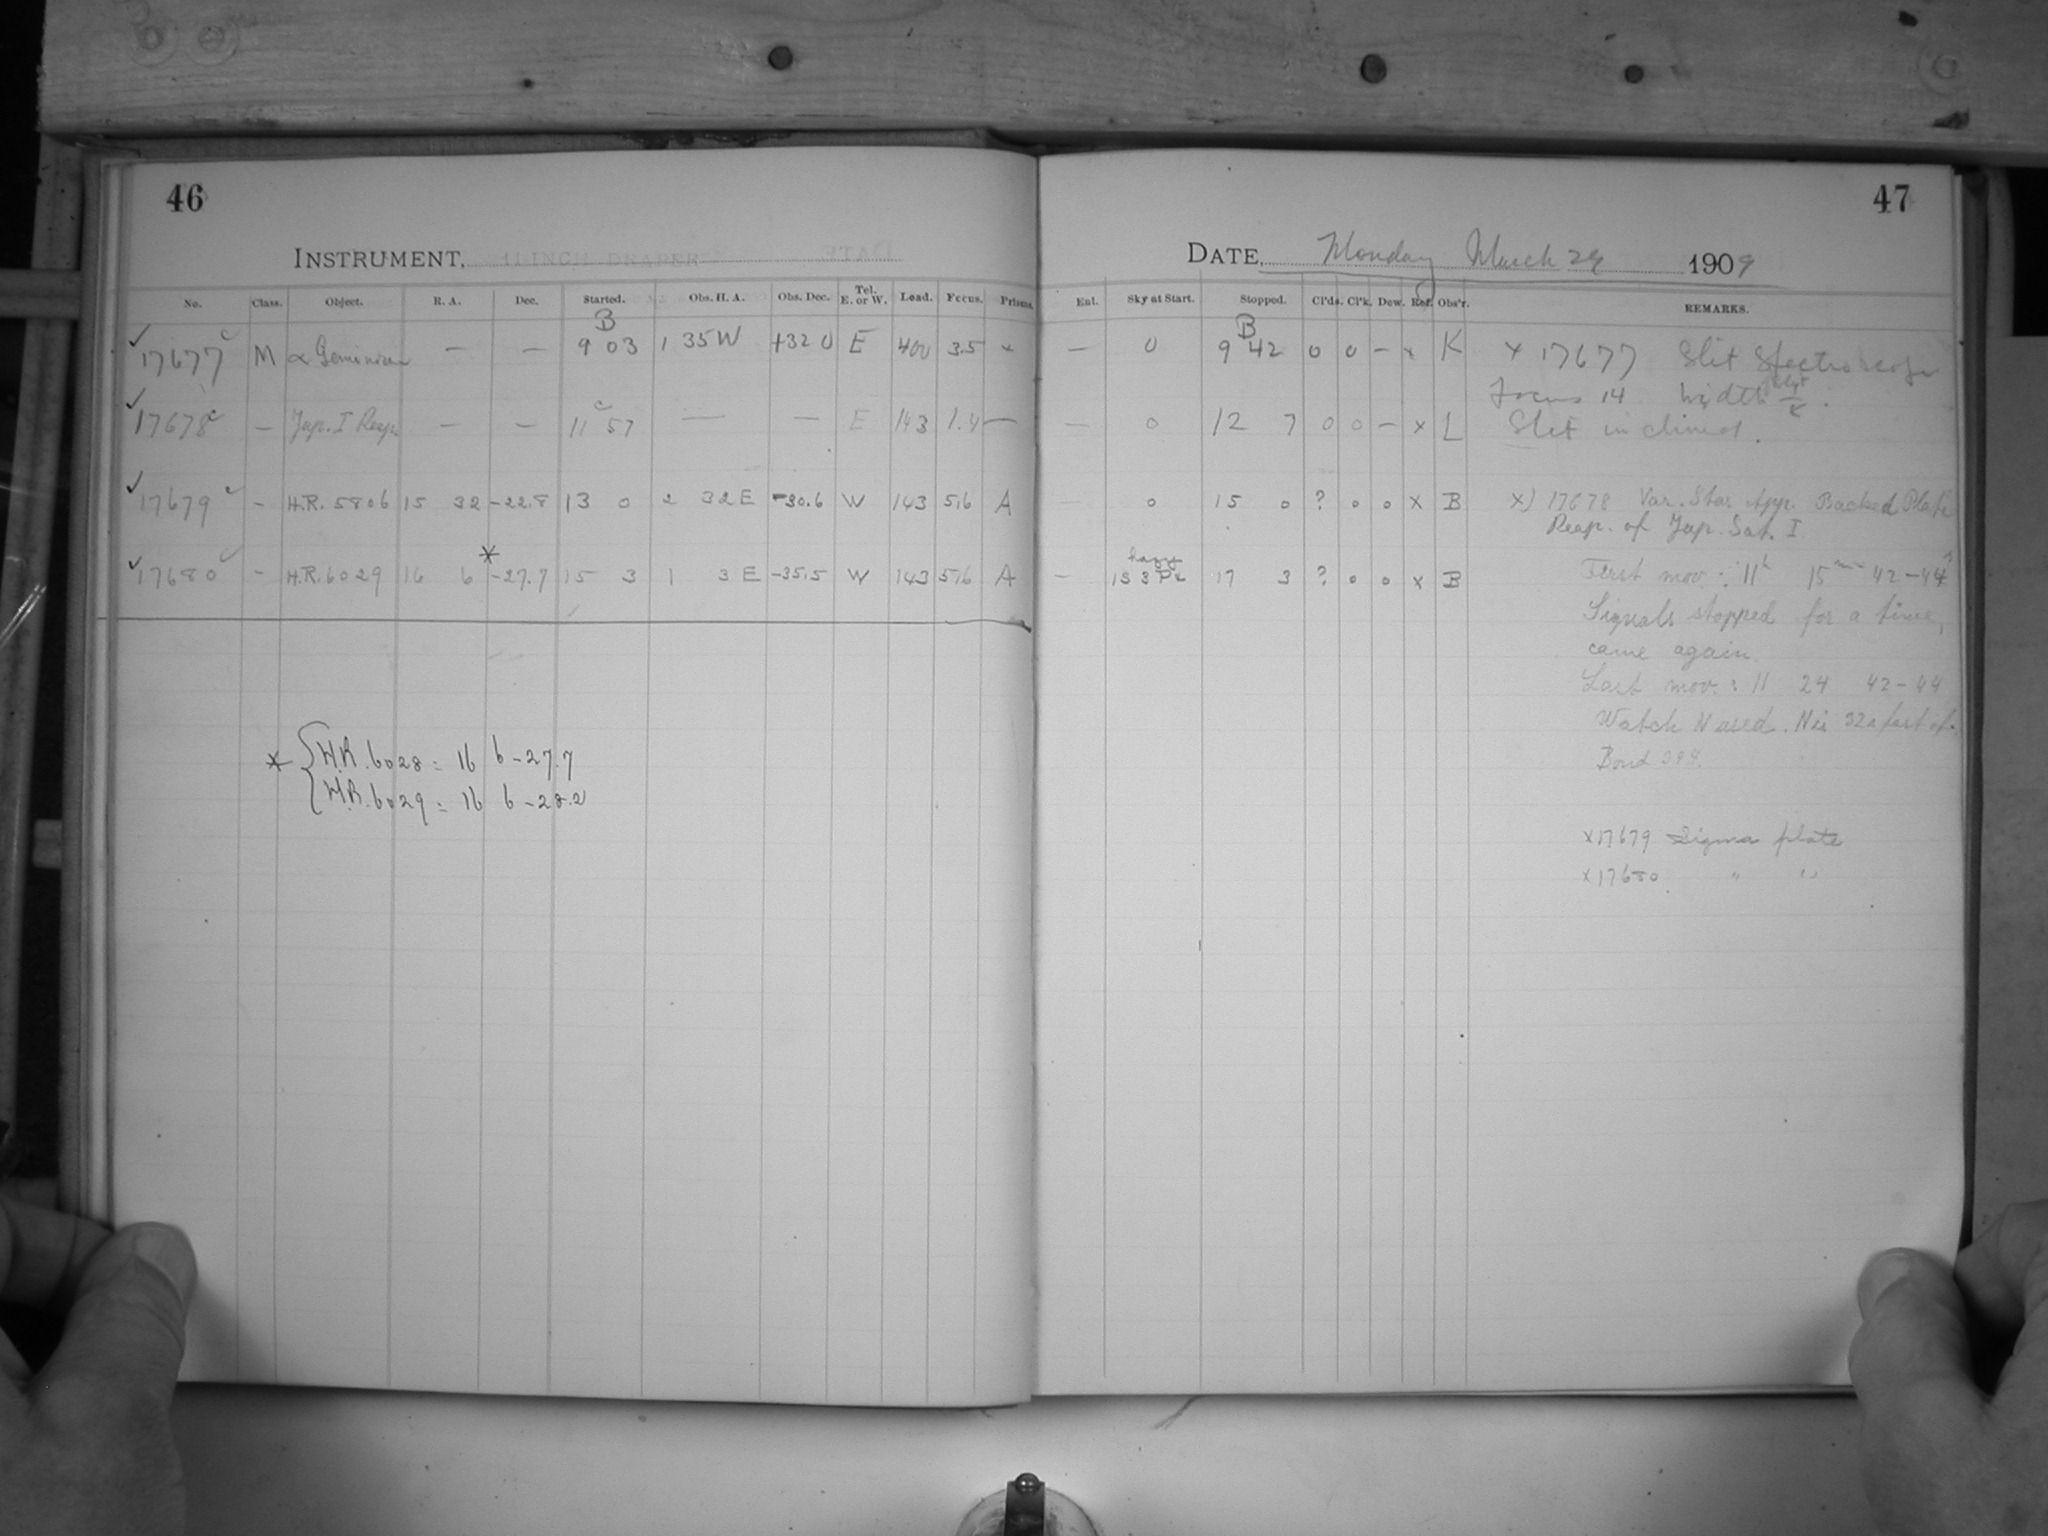 46
INSTRUMENT, 11 INCH DRAPER
No. Class. Object. R. A. Dec. Started. Obs. H. A. Obs. Dec. Tel. E. or W. Load. Focus. Prisms.
17677 M α Geminorum — — B 9 03 1 35 W +32 0 E 400 3.5 x
17678 — Jup. I Reap. — — 11 57 — — E 143 1.4 —
17679 — H.R. 5806 15 32 -22.8 13 0 2 32 E -30.6 W 143 5.6 A
17680 — H.R. 6029 16 6 * -27.7 15 3 1 3 E -35.5 W 143 5.6 A
* H.R. 6028 = 16 6 -27.7
H.R. 6029 = 16 6 -28.2
47
DATE, Monday March 29 1909
Ent. Sky at Start. Stopped. Cl'ds. Cl'k. Dew. Ref. Obs'r. REMARKS.
— 0 B 9 42 0 0 — x K x 17677 Slit Spectroscope
Focus 14 Width
— 0 12 7 0 0 — x L Slit inclined.
— 0 15 0 ? 0 0 x B x) 17678 Var. Star App. Backed Plate
Reap. of Jup. Sat. I
— hazy 15 3 17 3 ? 0 0 x B First mov: 11h 15m 42-44s
Signals stopped for a time,
came again.
Last mov.: 11 24 42-44
Watch N used. N is 32s fast of
Bond 394.
x 17679 Sigma plate
x 17680 " "